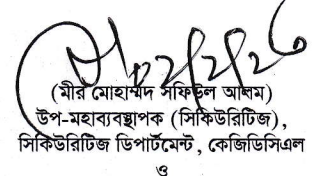 (মীর মোহাম্মদ সফিউল আলম)
উপ-মহাব্যবস্থাপক (সিকিউরিটিজ),
সিকিউরিটিজ ডিপার্টমেন্ট, কেজিডিসিএল
ও